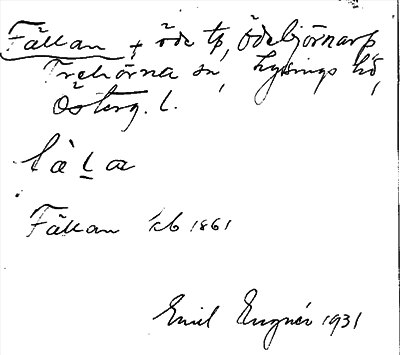 Fällan + öde tp, Ödebjörnarp
Trehörna sn, Lysings hd,
Österg. l.
Fällan kb 1861
Emil Engnér 1931